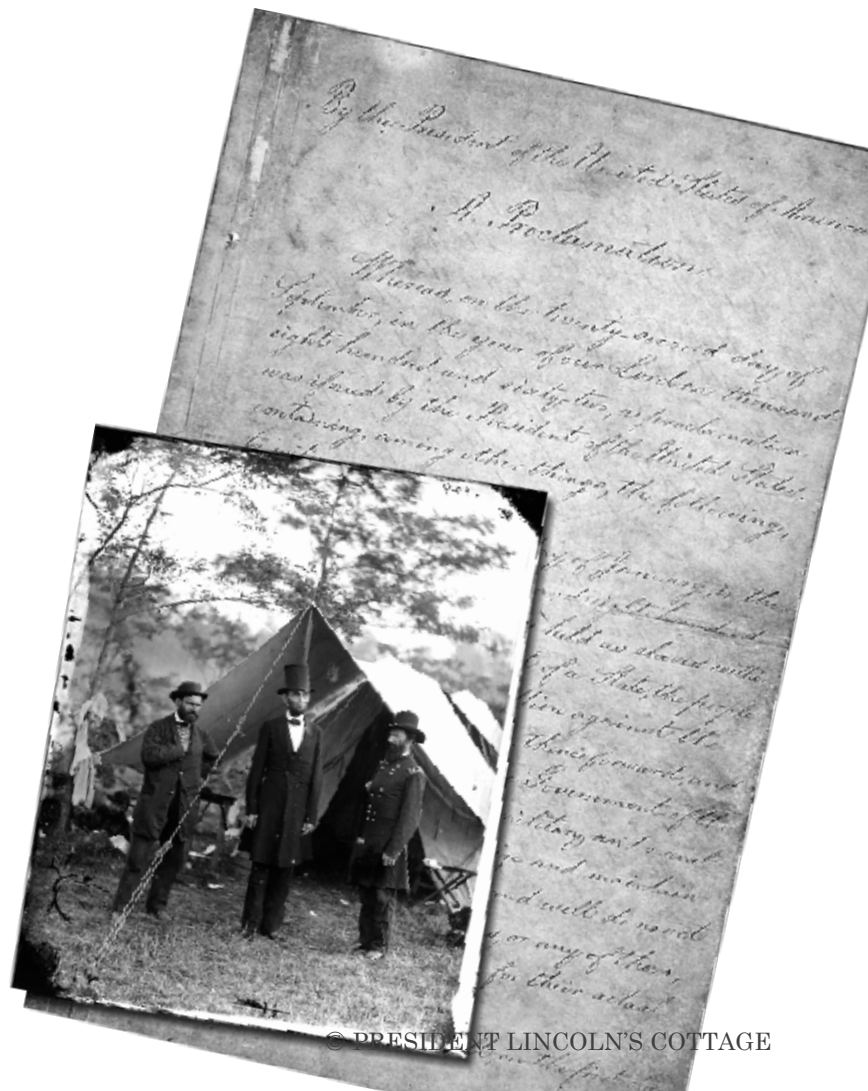 By the President of the United States of America
A Proclamation
Whereas, on the twenty-second day of
September, in the year of our Lord one thousand
eight hundred and sixty-two, a proclamation
was issued by the President of the United States,
containing, among other things, the following,
of January, in the
hundred
held as slaves within
of a State, the people
against the
thenceforward, and
Government of the
military and naval
and maintain
and will do no act
or any of them,
for their actual
© PRESIDENT LINCOLN'S COTTAGE